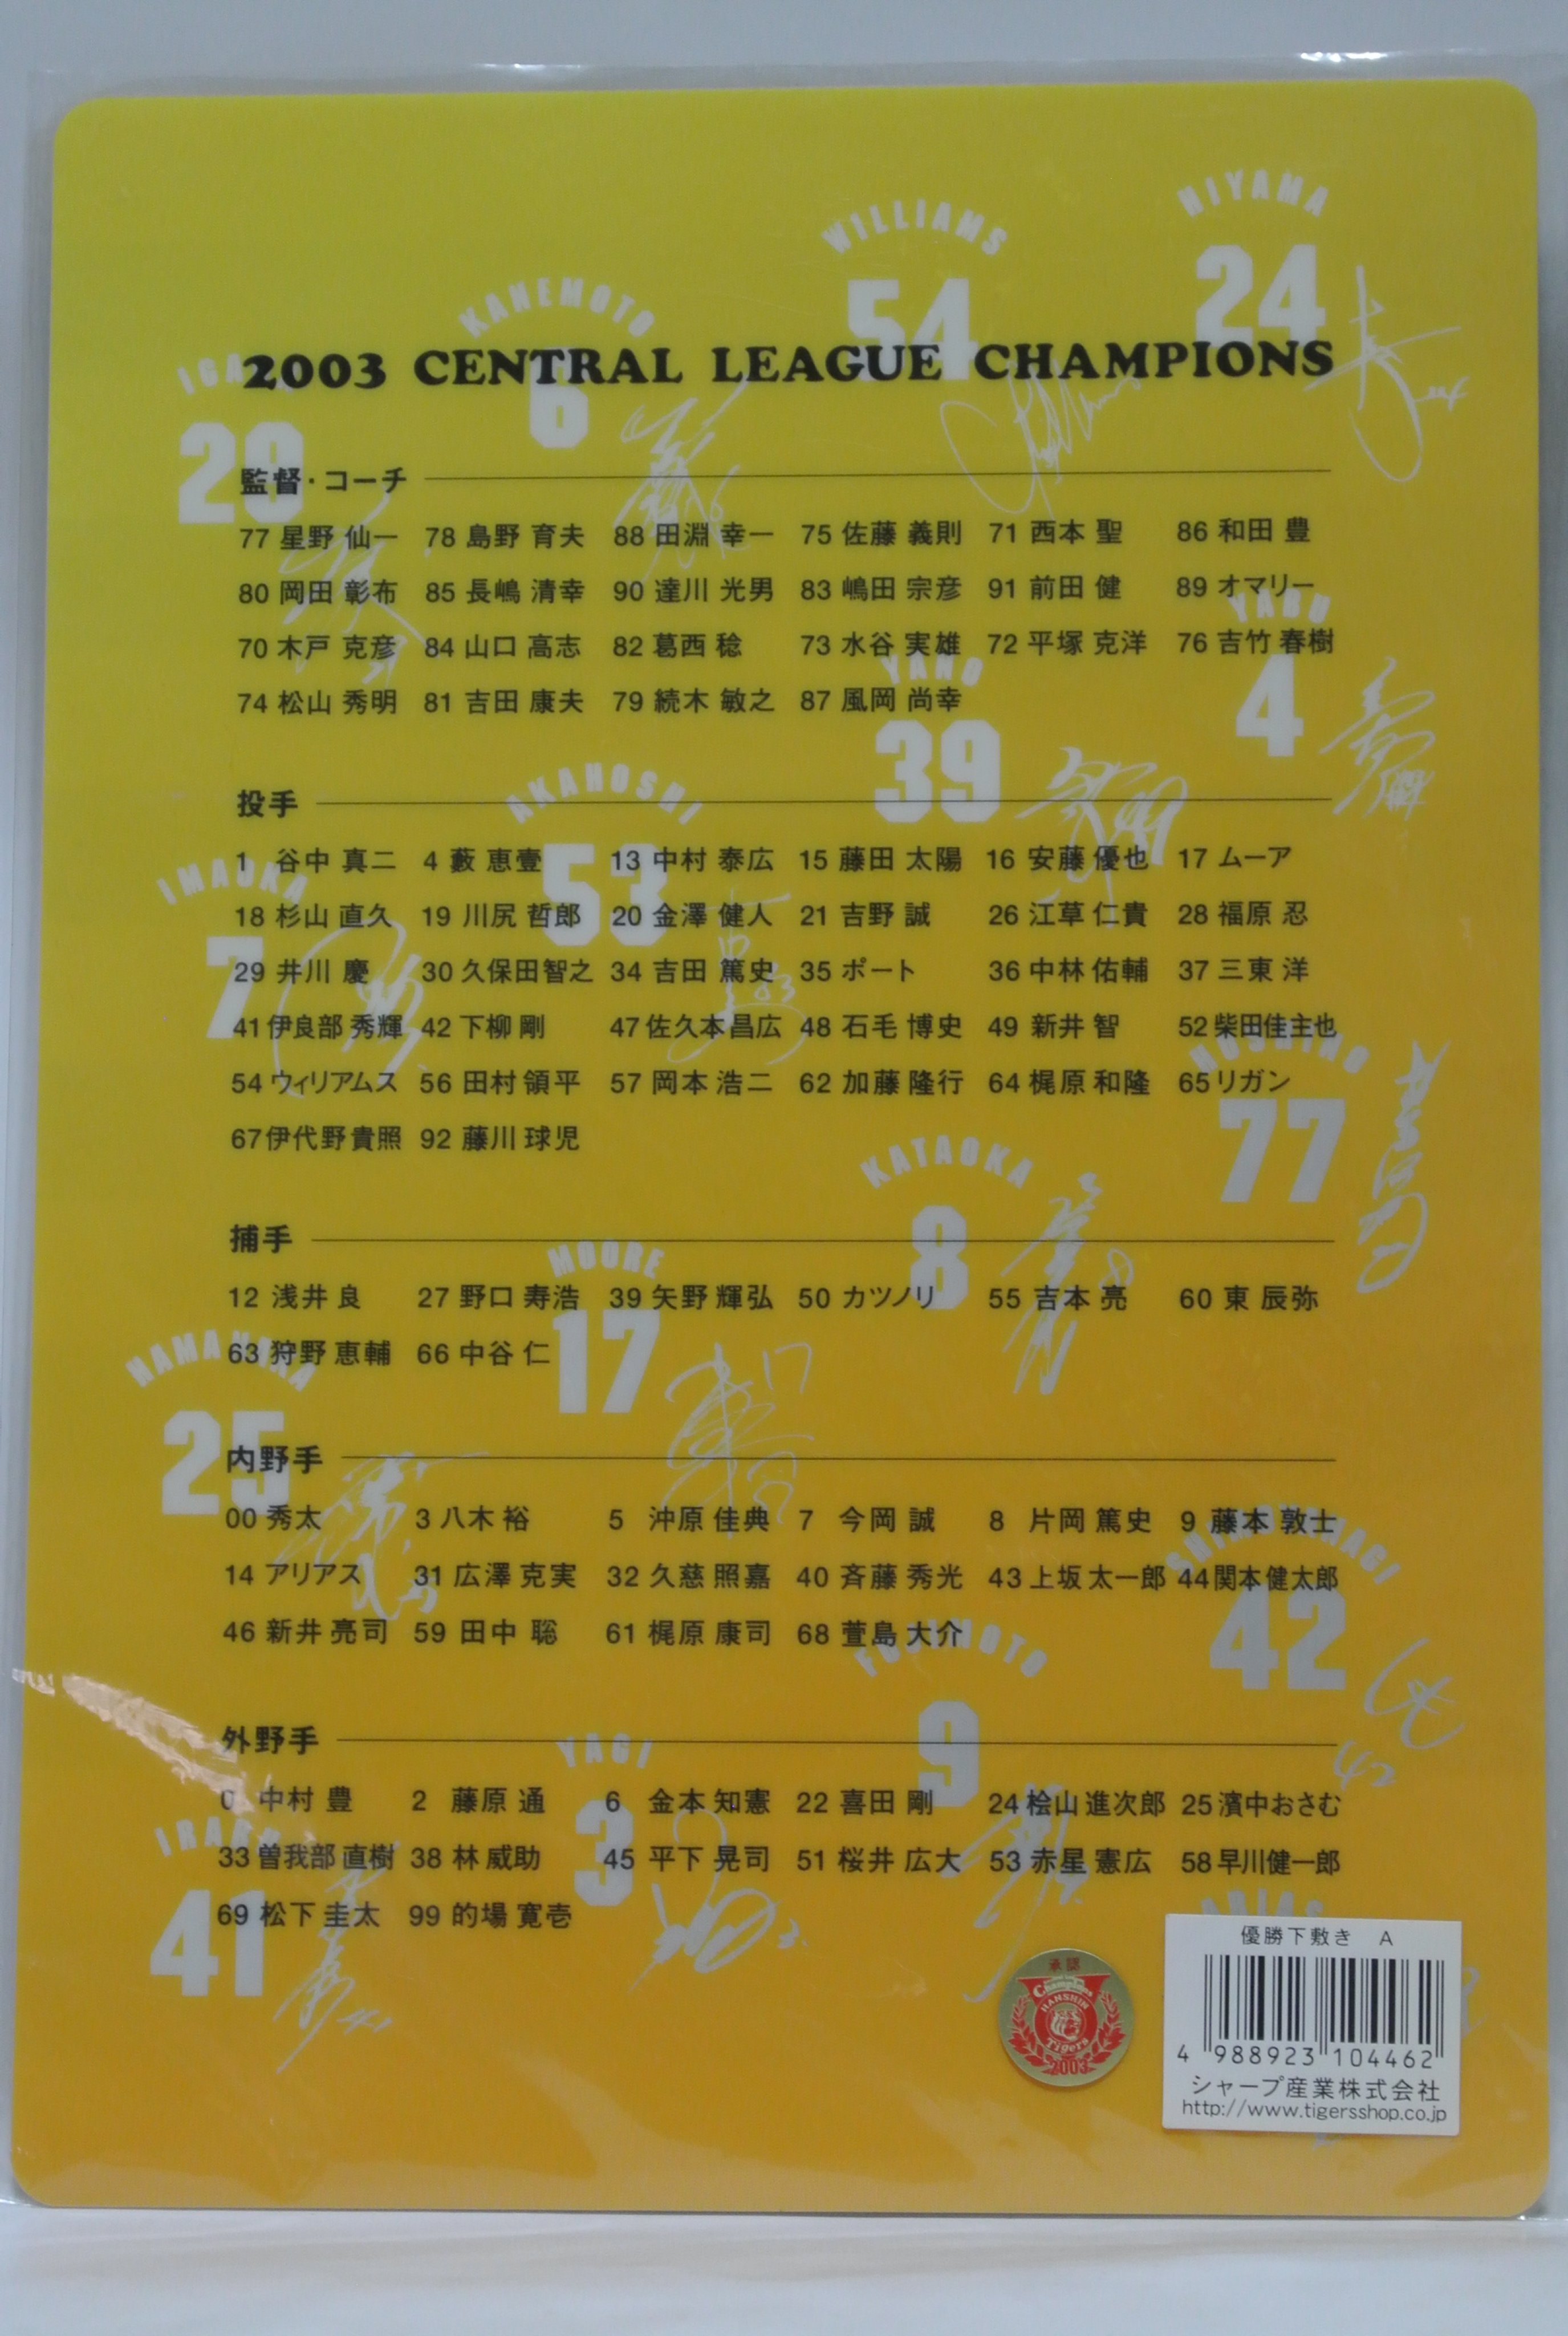 HIYAMA
24
WILLIAMS
54
KANEMOTO
6
2003 CENTRAL LEAGUE CHAMPIONS
29
監督・コーチ
77 星野 仙一 78 島野 育夫 88 田淵 幸一 75 佐藤 義則 71 西本 聖 86 和田 豊
80 岡田 彰布 85 長嶋 清幸 90 達川 光男 83 嶋田 宗彦 91 前田 健 89 オマリー
70 木戸 克彦 84 山口 高志 82 葛西 稔 73 水谷 実雄 72 平塚 克洋 76 吉竹 春樹
74 松山 秀明 81 吉田 康夫 79 続木 敏之 87 風岡 尚幸
YABU
4
YANO
39
投手
1 谷中 真二 4 藪 恵壹 13 中村 泰広 15 藤田 太陽 16 安藤 優也 17 ムーア
18 杉山 直久 19 川尻 哲郎 20 金澤 健人 21 吉野 誠 26 江草 仁貴 28 福原 忍
29 井川 慶 30 久保田智之 34 吉田 篤史 35 ポート 36 中林 佑輔 37 三東 洋
41 伊良部 秀輝 42 下柳 剛 47 佐久本昌広 48 石毛 博史 49 新井 智 52 柴田佳主也
54 ウィリアムス 56 田村 領平 57 岡本 浩二 62 加藤 隆行 64 梶原 和隆 65 リガン
67 伊代野貴照 92 藤川 球児
AKAHOSHI
53
IMAOKA
7
HOSHINO
77
KATAOKA
8
捕手
12 浅井 良 27 野口 寿浩 39 矢野 輝弘 50 カツノリ 55 吉本 亮 60 東 辰弥
63 狩野 恵輔 66 中谷 仁
MOORE
17
25
内野手
00 秀太 3 八木 裕 5 沖原 佳典 7 今岡 誠 8 片岡 篤史 9 藤本 敦士
14 アリアス 31 広澤 克実 32 久慈 照嘉 40 斉藤 秀光 43 上坂 太一郎 44 関本健太郎
46 新井 亮司 59 田中 聡 61 梶原 康司 68 萱島 大介
42
FUJIMOTO
9
外野手
0 中村 豊 2 藤原 通 6 金本 知憲 22 喜田 剛 24 桧山 進次郎 25 濱中おさむ
33 曽我部 直樹 38 林 威助 45 平下 晃司 51 桜井 広大 53 赤星 憲広 58 早川健一郎
69 松下 圭太 99 的場 寛壱
YAGI
3
41
ARIAS
承認
Champions
HANSHIN
Tigers
2003
優勝下敷き A
4 988923 104462
シャープ産業株式会社
http://www.tigersshop.co.jp